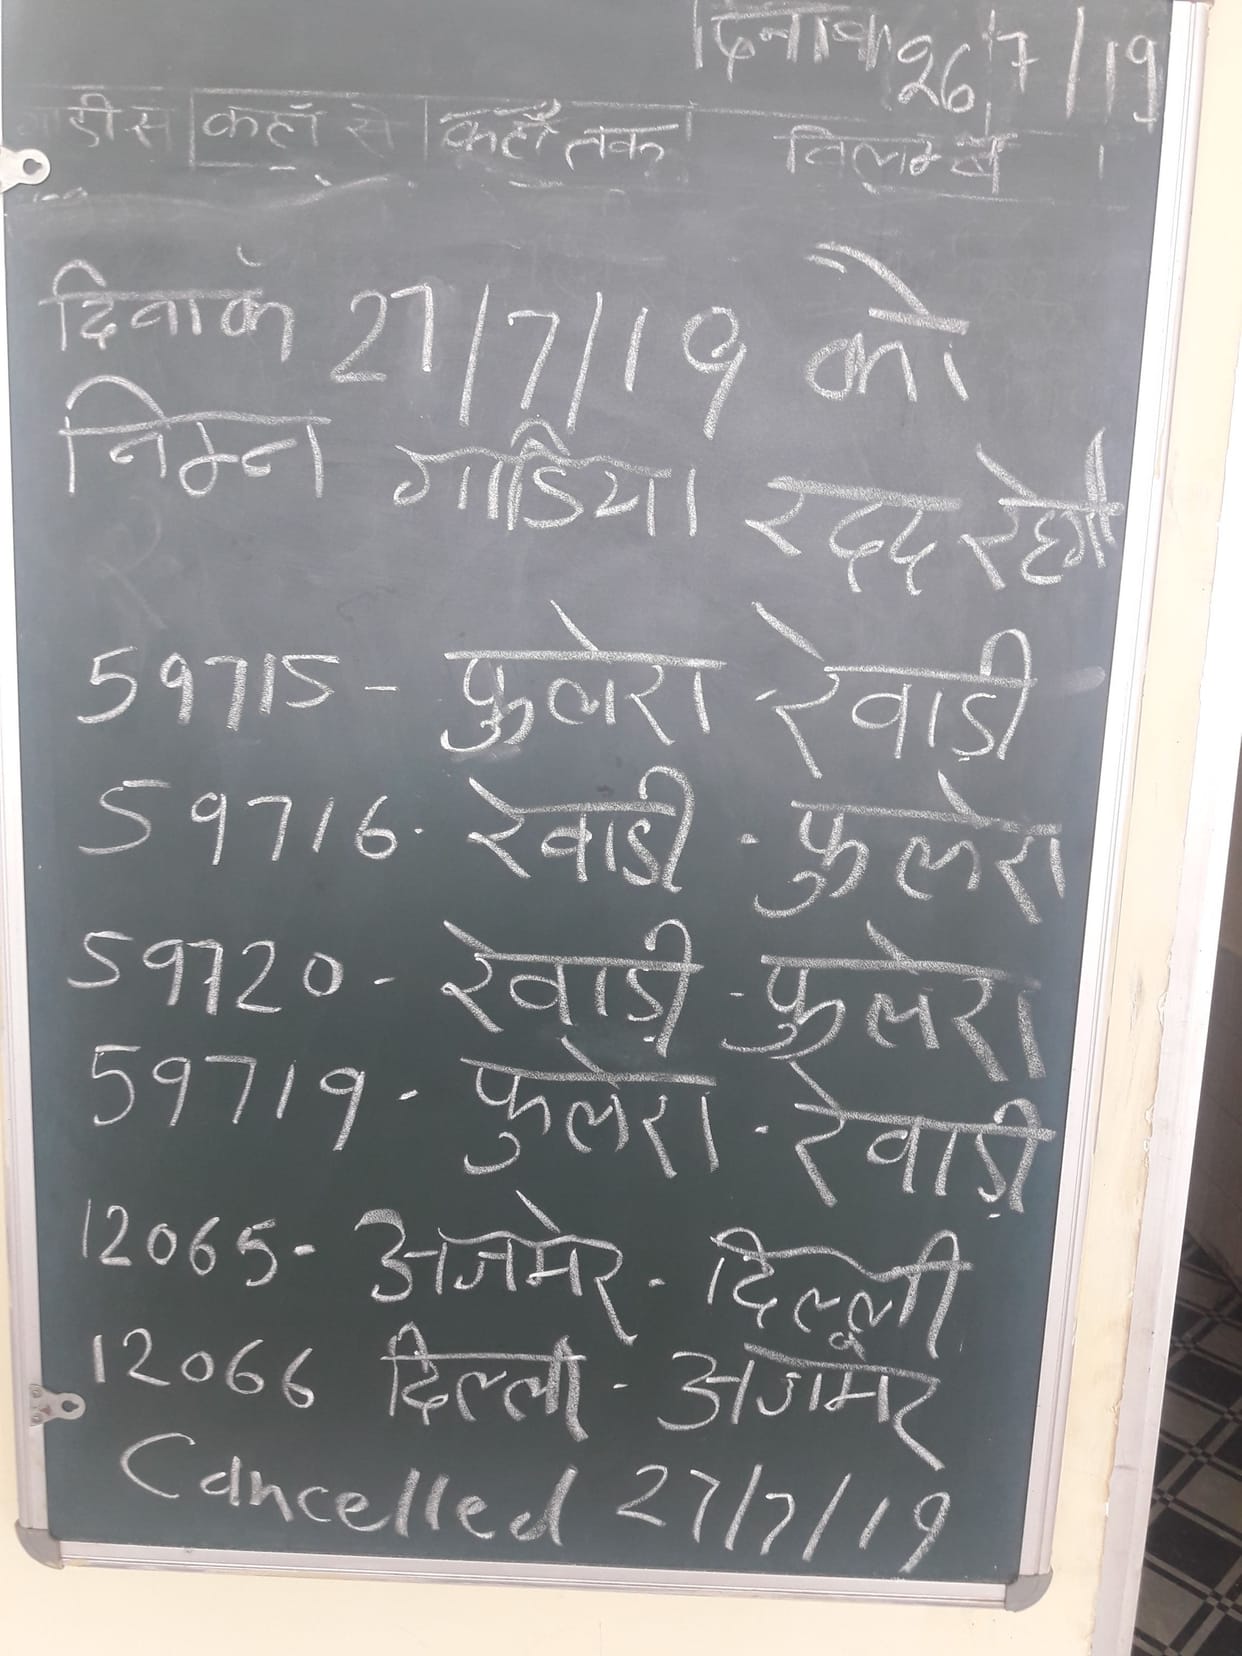 दिनांक 26/7/19
गाडी स | कहाँ से | कहाँ तक | विलम्ब |
दिनाकं 27/7/19 को
निम्न गाडिया रदद रहेगी
59715 - फुलेरा - रेवाड़ी
59716 - रेवाडी - फुलेरा
59720 - रेवाड़ी - फुलेरा
59719 - फुलेरा - रेवाड़ी
12065 - अजमेर - दिल्ली
12066 दिल्ली - अजमेर
Cancelled 27/7/19